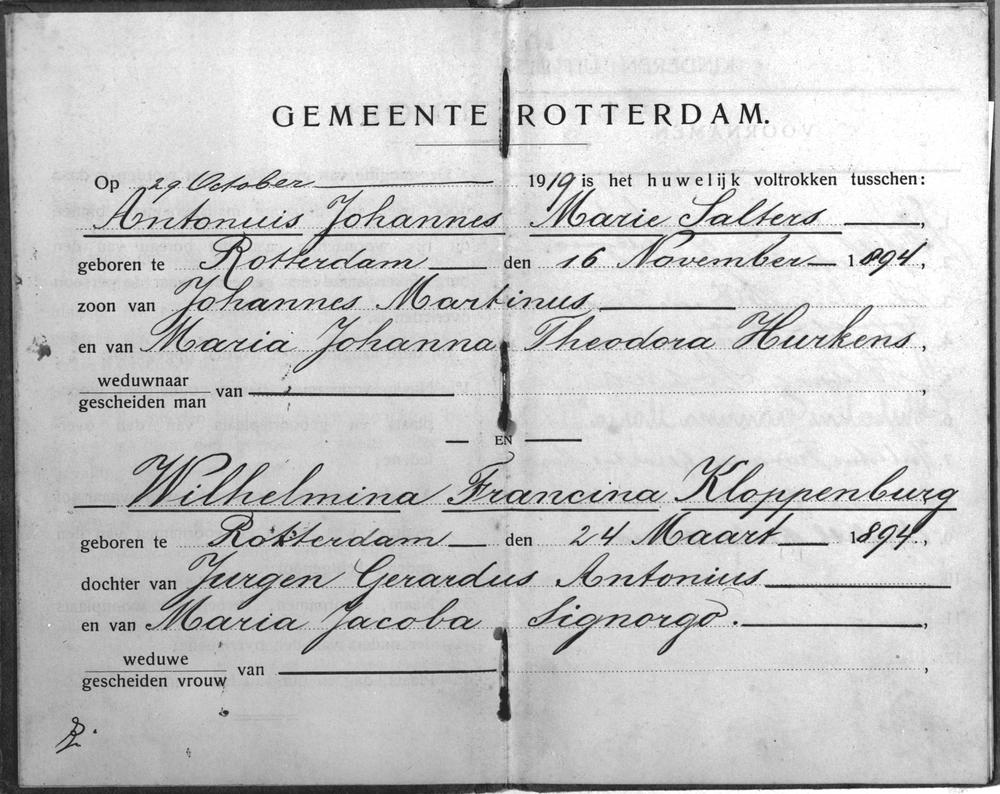 GEMEENTE ROTTERDAM.
Op 29 October 1919 is het huwelijk voltrokken tusschen:
Antonius Johannes Marie Salters,
geboren te Rotterdam den 16 November 1894,
zoon van Johannes Martinus,
en van Maria Johanna Theodora Hurkens,
weduwnaar
gescheiden man van ,
EN
Wilhelmina Francina Kloppenburg
geboren te Rotterdam den 24 Maart 1894,
dochter van Jurgen Gerardus Antonius
en van Maria Jacoba Signorgo.,
weduwe
gescheiden vrouw van ,